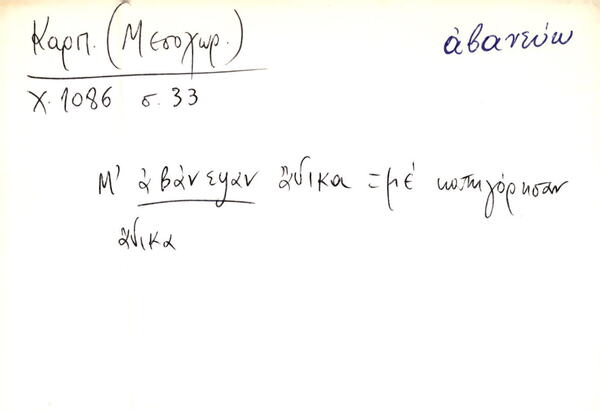 Καρπ. (Μεσοχωρ.)
ἀβανεύω
Χ. 1086 σ. 33
Μ' ἀβάνεψαν ἄδικα = μέ κατηγόρησαν
ἄδικα